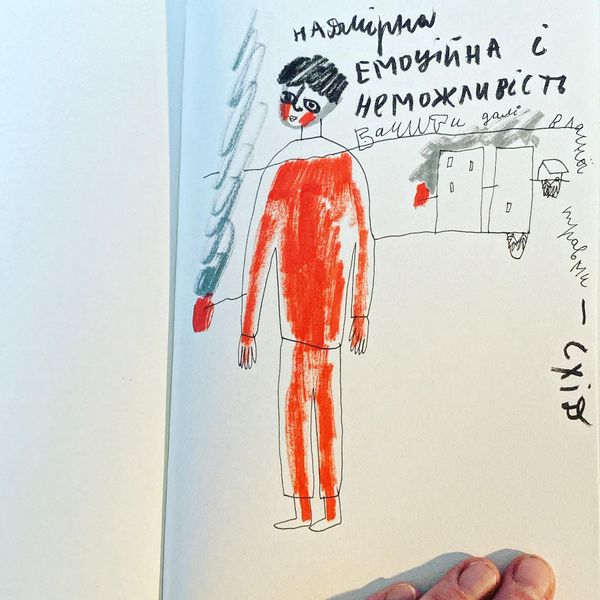 надмірна
емоційна і
неможливість
бачити далі власної
травми — схід